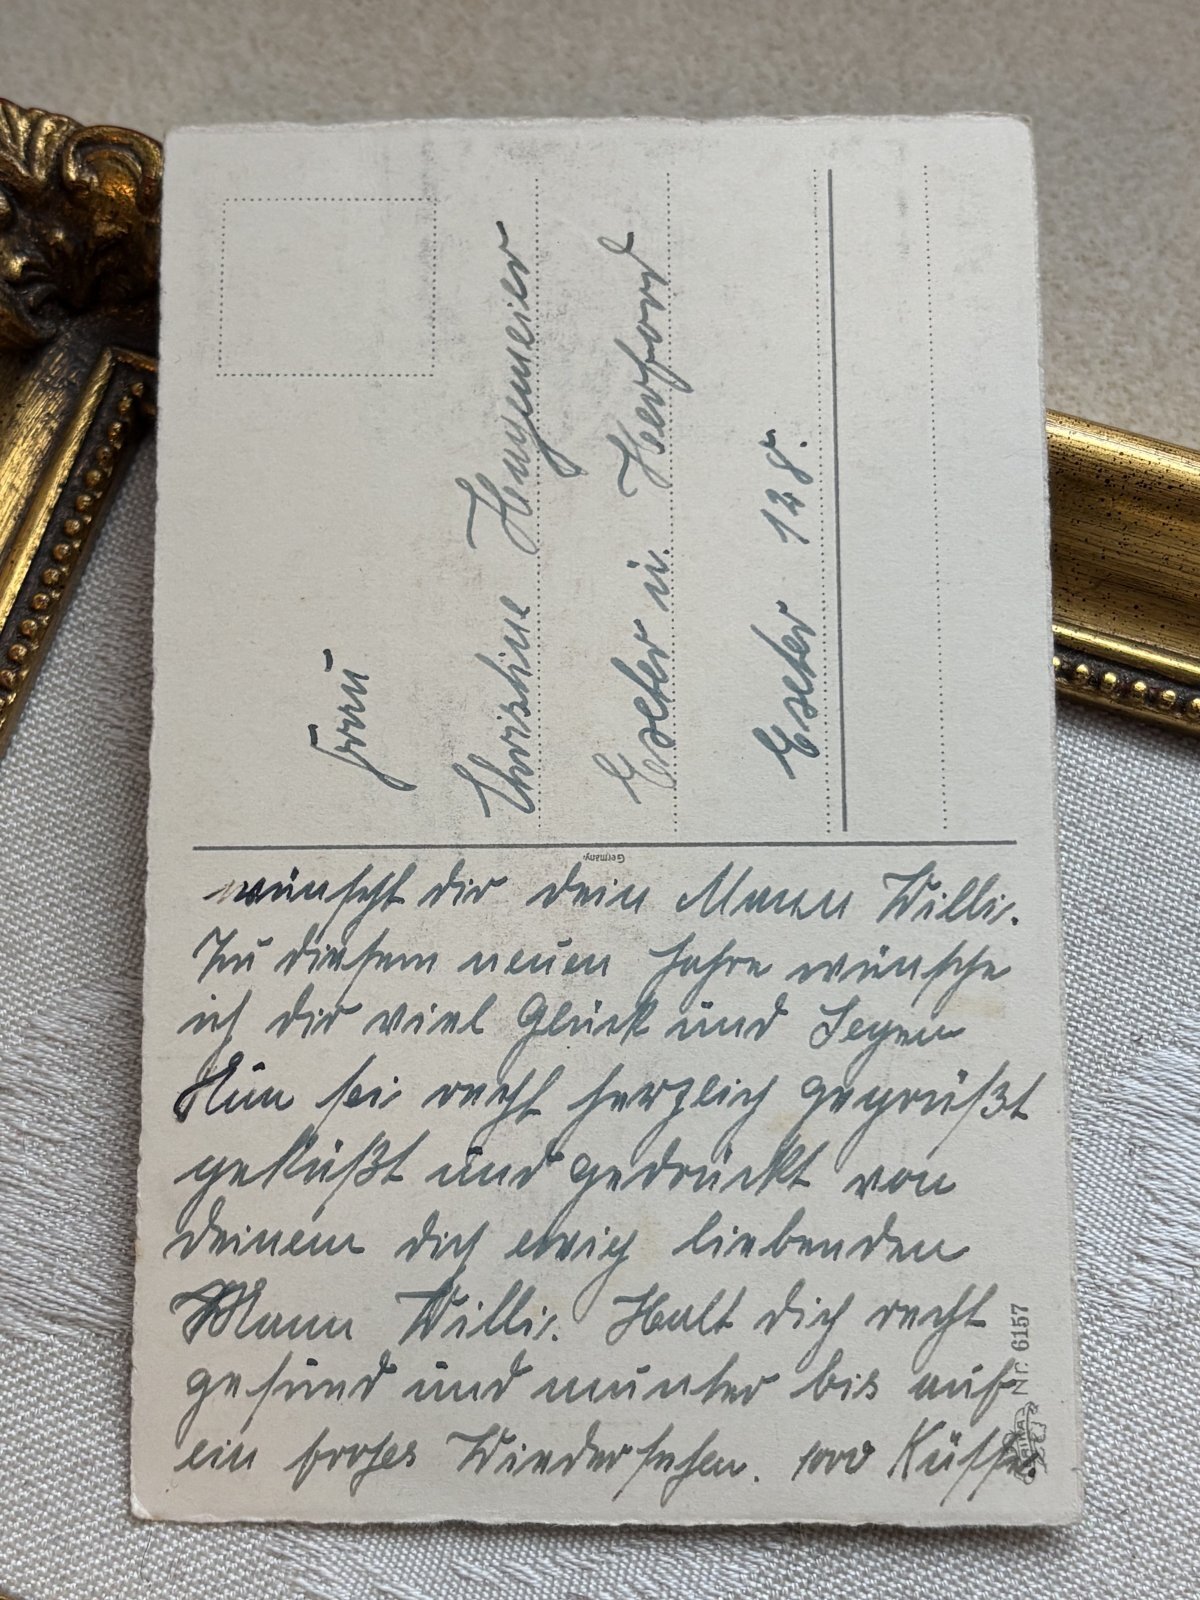 wünscht dir dein Mann Willi.
Zu diesem neuen Jahre wünsche
ich dir viel Glück und Segen
Nun sei recht herzlich gegrüßt
geküßt und gedrückt von
deinem dich ewig liebenden
Mann Willi. Halt dich recht
gesund und munter bis auf
ein frohes Wiedersehen. 1000 Küsse.
Frau
Christine Hengemeier
Exter ü. Herford
Exter 128.
Germany.
Nr. 6157